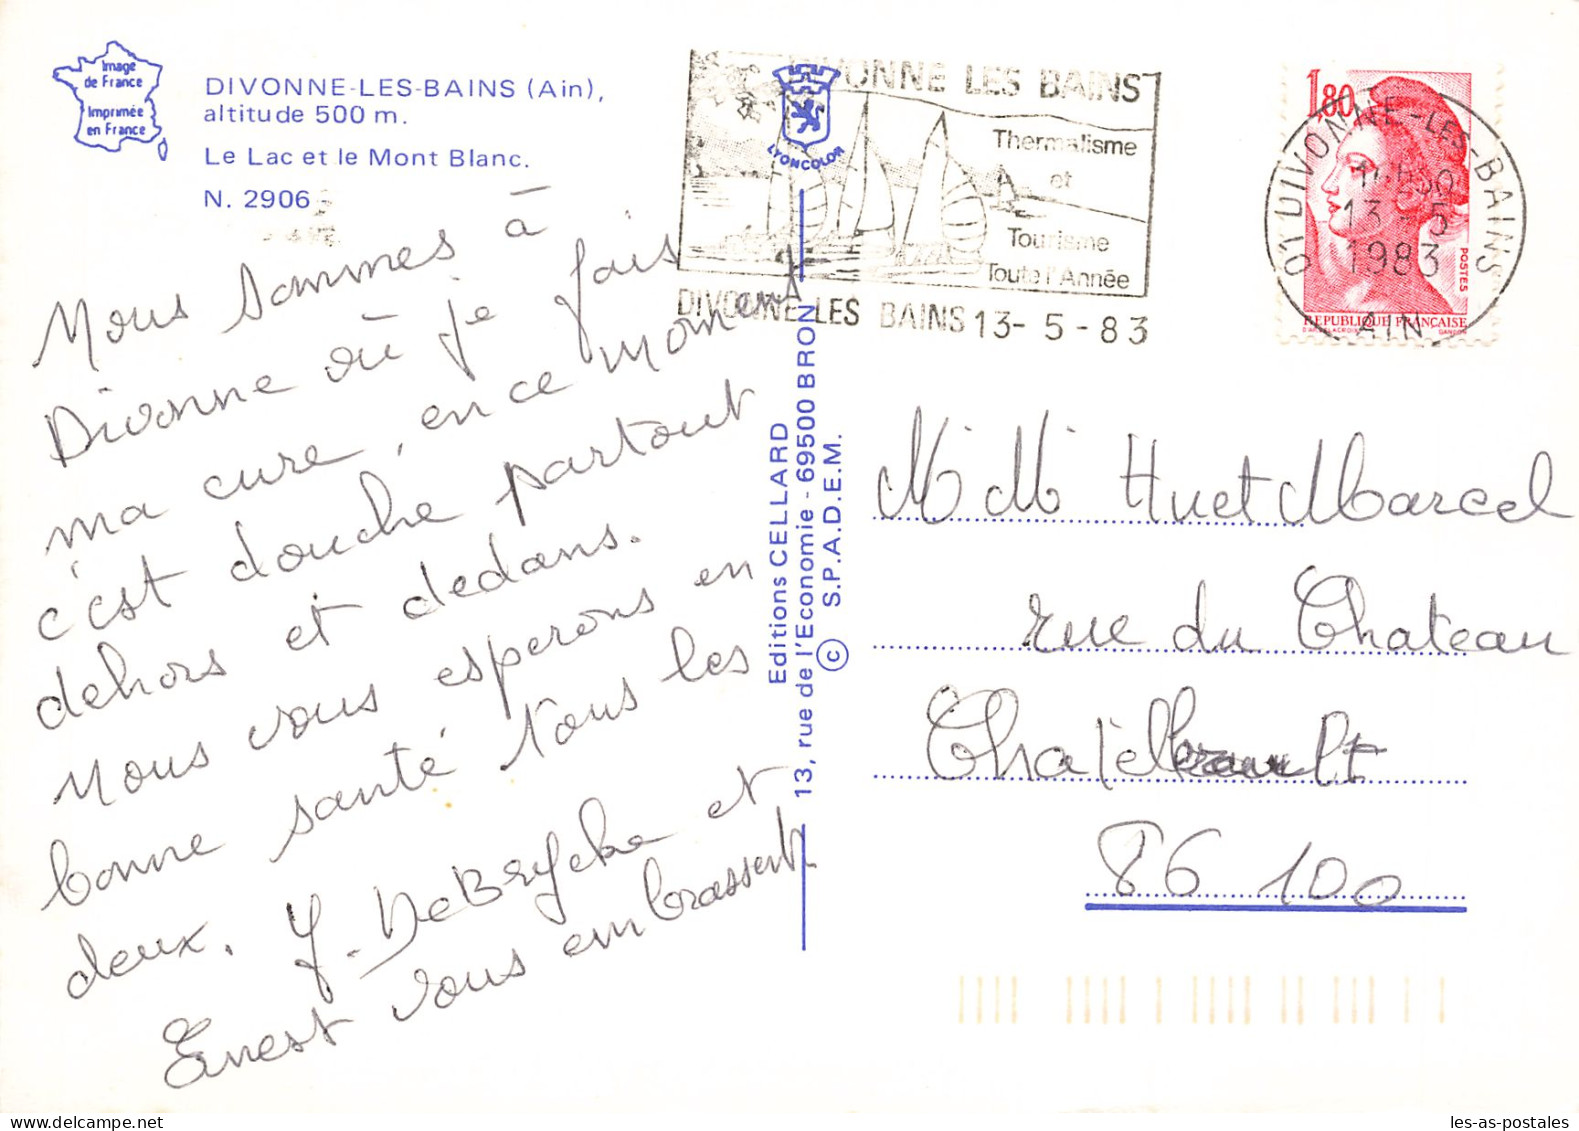 Image
de France
Imprimée
en France
DIVONNE-LES-BAINS (Ain),
altitude 500 m.
Le Lac et le Mont Blanc.
N. 2906
Nous sommes à
Divonne où je fais
ma cure, en ce moment
c'est douche partout
dehors et dedans.
Nous vous esperons en
bonne santé tous les
deux. Y. DeBRycke et
Ernest vous embrassent
LYONCOLOR
Editions CELLARD
13, rue de l'Economie - 69500 BRON
© S.P.A.D.E.M.
DIVONNE LES BAINS
Thermalisme
et
Tourisme
Toute l'Année
DIVONNE LES BAINS 13-5-83
1,80
POSTES
REPUBLIQUE FRANÇAISE
D'APRES DELACROIX GANDON
01 DIVONNE-LES-BAINS
13-5
1983
AIN
M. M. Huet Marcel
rue du Chateau
Chatellerault
86 100
les-as-postales